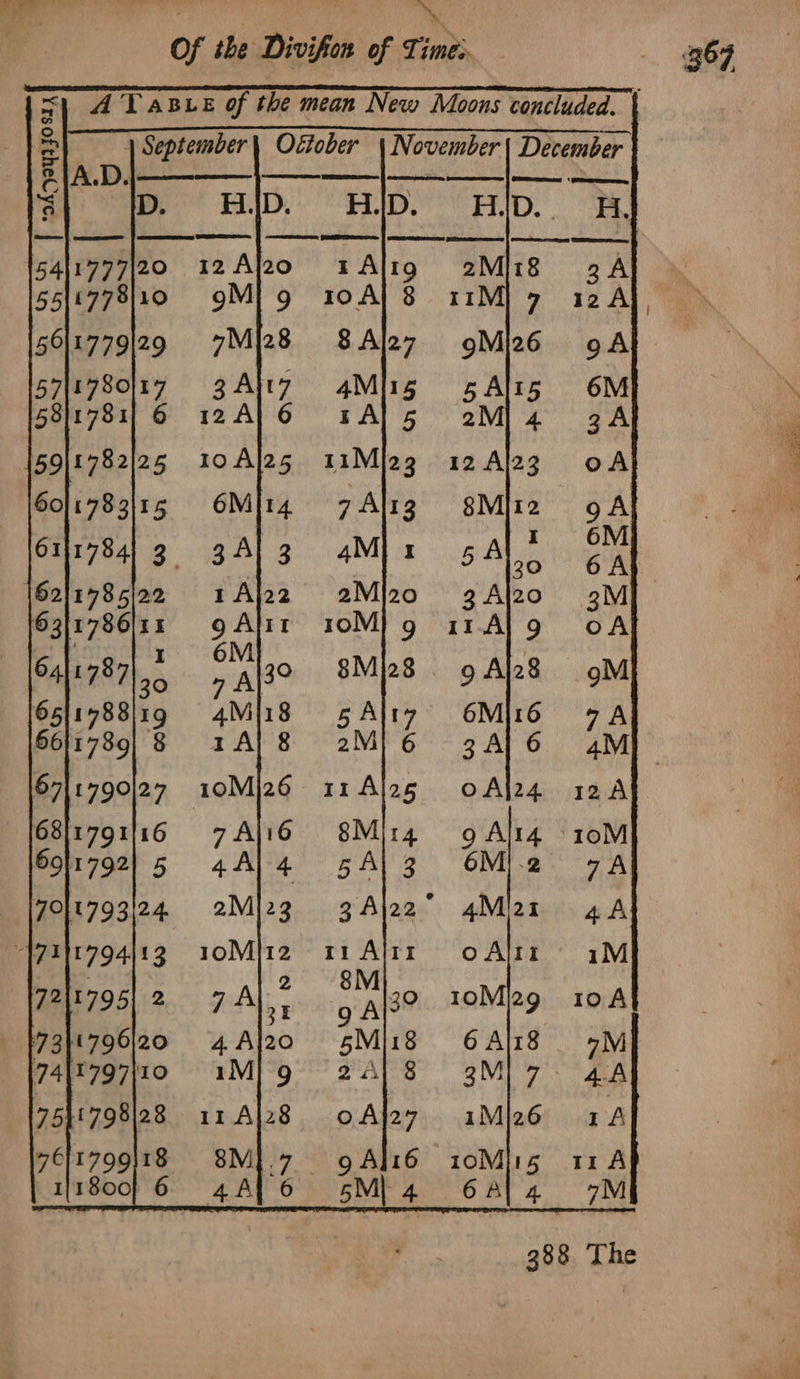 Of the Diviſion of Time. 367
A TABLE of the mean New Moons concluded.
Yrs of the Cyc. A.D. September October November December
D. H. D. H. D. H. D. H.
54 1777 20 12 A 20 1 A 19 2M 18 3 A
55 1778 10 9M 9 10A 8 11M 7 12 A
56 1779 29 7M 28 8 A 27 9M 26 9 A
57 1780 17 3 A 17 4M 15 5 A 15 6M
58 1781 6 12A 6 1A 5 2M 4 3A
59 1782 25 10 A 25 11M 23 12 A 23 0 A
60 1783 15 6M 14 7 A 13 8M 12 9 A
61 1784 3 3A 3 4M 1 5 A 1 6M
30 6 A
62 1785 22 1 A 22 2M 20 3 A 20 3M
63 1786 11 9 A 11 10M 9 11A 9 0A
64 1787 1 6M
30 7 A 30 8M 28 9 A 28 9M
65 1788 19 4M 18 5 A 17 6M 16 7 A
66 1789 8 1A 8 2M 6 3A 6 4M
67 1790 27 10M 26 11 A 25 0 A 24 12 A
68 1791 16 7 A 16 8M 14 9 A 14 10M
69 1792 5 4A 4 5A 3 6M 2 7A
70 1793 24 2M 23 3 A 22 4M 21 4 A
71 1794 13 10M 12 11 A 11 0 A 11 1M
72 1795 2 7 A 2 8M
31 9 A 30 10M 29 10 A
73 1796 20 4 A 20 5M 18 6 A 18 7M
74 1797 10 1M 9 2A 8 3M 7 4A
75 1798 28 11 A 28 0 A 27 1M 26 1 A
76 1799 18 8M 7 9 A 16 10M 15 11 A
1 1800 6 4A 6 5M 4 6A 4 7M
388 The